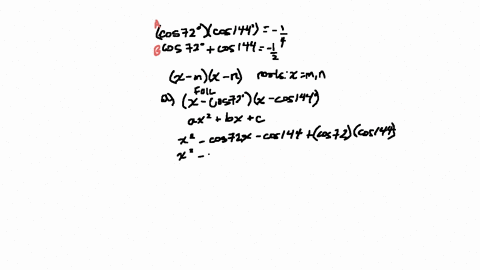 A (cos72°)(cos144°) = -1/4
B cos72° + cos144 = -1/2
(x-m)(x-n) roots: x=m,n
FOIL
a) (x-cos72°)(x-cos144°)
ax² + bx + c
x² - cos72x - cos144 + (cos72)(cos144)
x² -